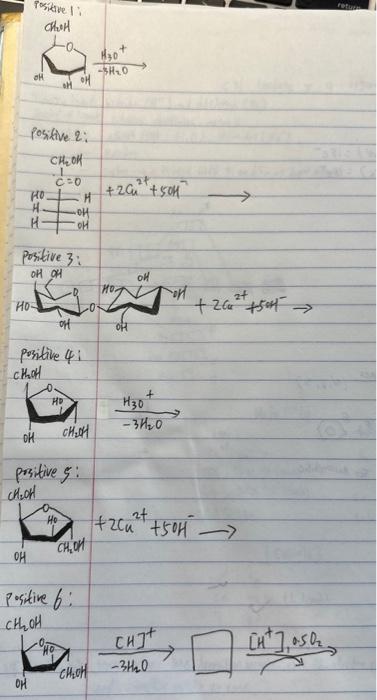 return
Positive 1:
CH2OH
O
H3O+
-3H2O
OH OH OH
Positive 2:
CH2OH
C=O
HO H
H OH
H OH
+ 2Cu2+ + 5OH-
Positive 3:
OH OH
OH
HO
O
HO
OH
O
OH
OH
+ 2Cu2+ + 5OH-
Positive 4:
CH2OH
O
HO
OH
CH2OH
H3O+
-3H2O
Positive 5:
CH2OH
O
HO
OH
CH2OH
+ 2Cu2+ + 5OH-
Positive 6:
CH2OH
O
HO
OH
CH2OH
[H]+
-3H2O
[H+], 0.5O2